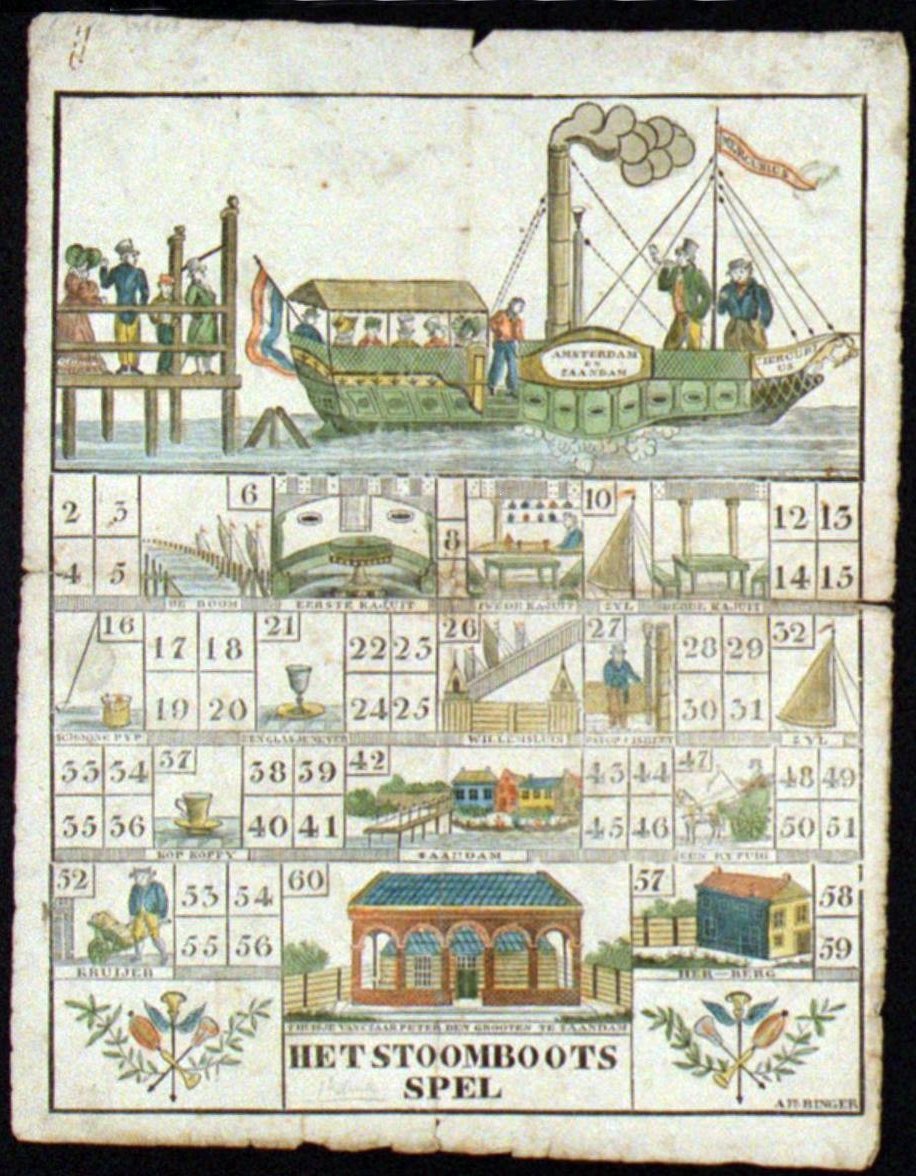 MERCURIUS
AMSTERDAM
EN
ZAANDAM
MERCURI
US
2 3 6 8 10 12 13
4 5 14 15
DE BOOM EERSTE KAJUIT TWEDE KAJUIT ZYL DERDE KAJUIT
16 17 18 21 22 23 26 27 28 29 32
19 20 24 25 30 31
SCHOONE PYP EEN GLAS JENEVER WILLEMSLUIS ZYL
33 34 37 38 39 42 43 44 47 48 49
35 36 40 41 45 46 50 51
KOP KOFFY SAANDAM EEN RYTUIG
52 53 54 60 57 58
55 56 59
KRUIJER HER-BERG
T HUISJE VAN CZAAR PETER DEN GROOTEN TE ZAANDAM
HET STOOMBOOTS
SPEL
BINGER